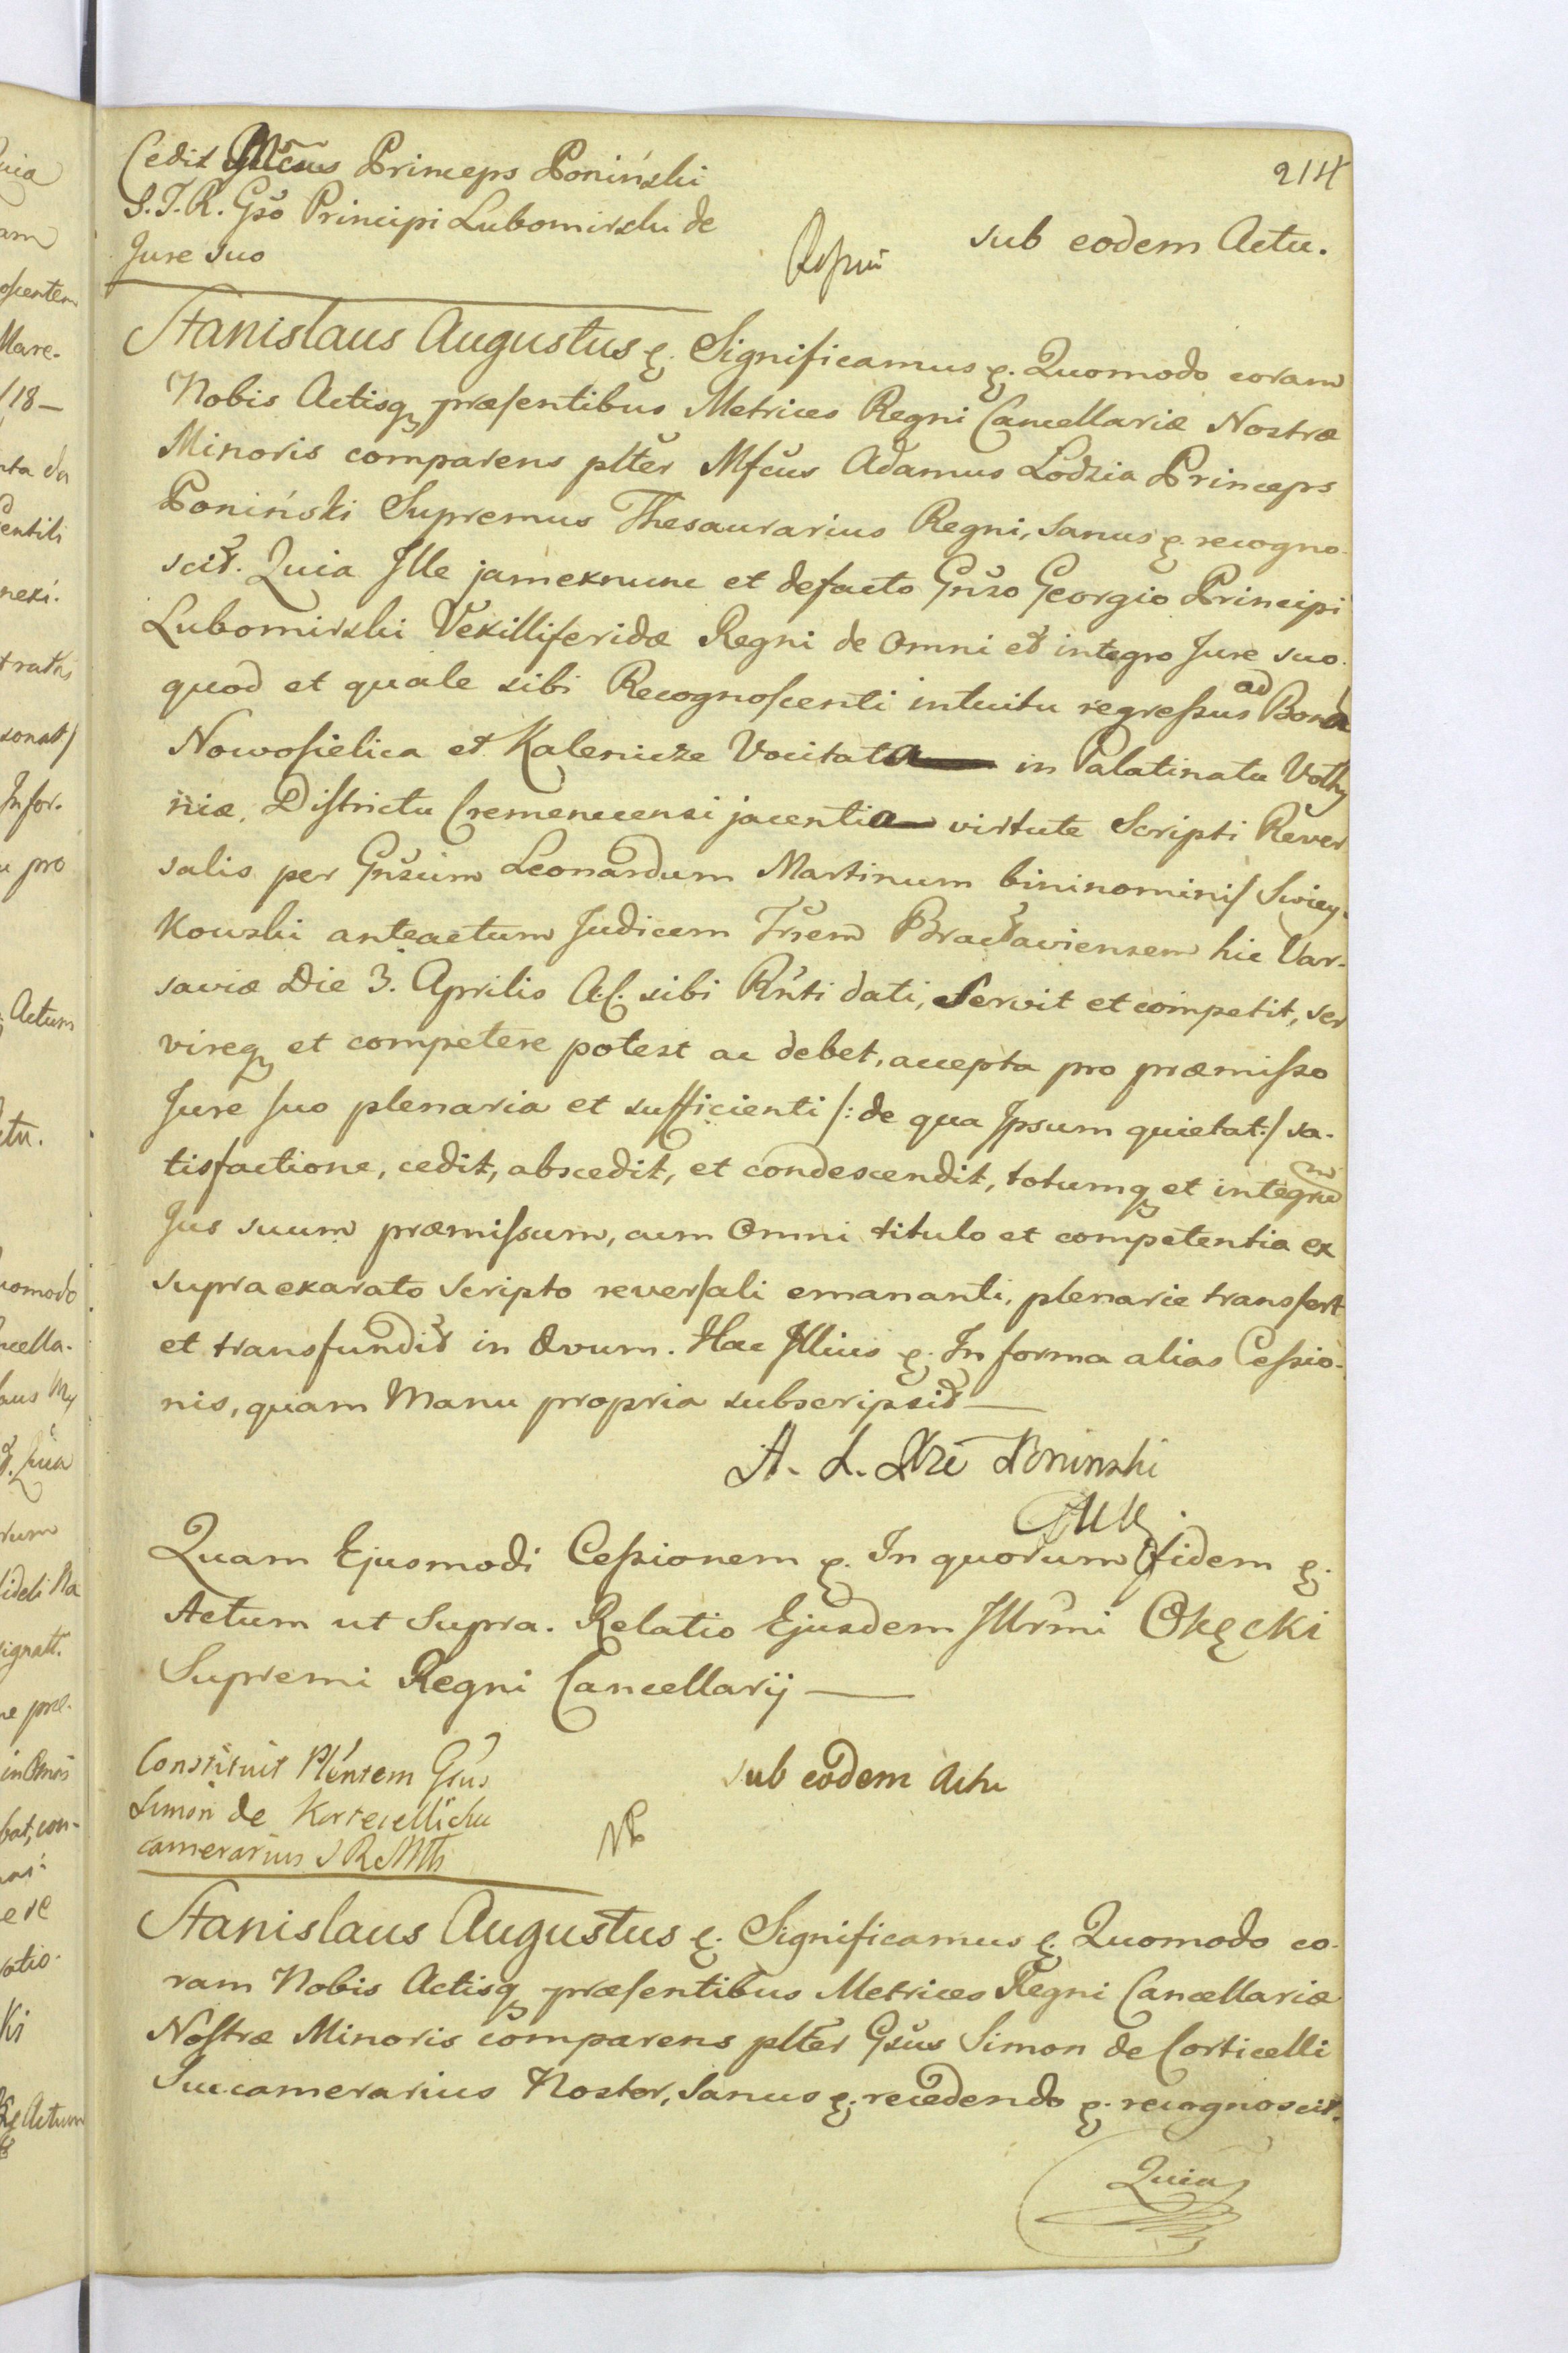 214
Cedit Mfcus Princeps Poniński
S.T.R. Gso Principi Lubomirski de
Jure suo
sub eodem Actu.
Stanislaus Augustus &. Significamus &. Quomodo coram
Nobis Actisq præsentibus Metrices Regni Cancellariæ Nostræ
Minoris comparens plter Mfcus Adamus Lodzia Princeps
Poniński Supremus Thesaurarius Regni, sanus & recogno-
scit. Quia Ille jamexnunc et defacto Gnso Georgio Principi
Lubomirski Vexilliferidæ Regni de omni et integro Jure suo.
quod et quale sibi Recognoscenti intuitu regressus ad Bona
Nowosielica et Kalenicze Vocitata in Palatinatu Volhy
niæ, Districtu Cremenecensi jacentia virtute Scripti Rever
salis per Gnsum Leonardum Martinum bininominis Swiey-
kowski anteactum Judicem Trrem Bracłaviensem hic Var-
saviæ Die 3. Aprilis A.C. sibi Rnti dati, servit et competit, ser
vireq et competere potest ac debet, accepta pro præmisso
Jure suo plenaria et sufficienti /: de qua Ipsum quietat :/ sa-
tisfactione, cedit, abscedit, et condescendit, totumq et integrum
Jus suum præmissum, cum omni titulo et competentia ex
supraexarato scripto reversali emananti, plenarie transfert
et transfundit in ævum. Hac Illius &. In forma alias Cessio-
nis, quam Manu propria subscripsit —
A. L. Xże Poninski
Quam Ejusmodi Cessionem &. In quorum fidem &.
Actum ut supra. Relatio Ejusdem Illrmi Okęcki
Supremi Regni Cancellarij —
Constituit Plentem Gsus
Simon de Kortecelli
camerarius S R Mtis
sub eodem Actu
Stanislaus Augustus &. Significamus &. Quomodo co-
ram Nobis Actisq præsentibus Metrices Regni Cancellariæ
Nostræ Minoris comparens plter Gsus Simon de Corticelli
Succamerarius Noster, sanus &. recedendo &. recognoscit.
Quia